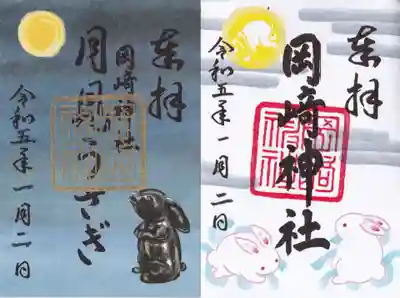 奉拝
岡崎神社
月見うさぎ
令和五年一月二日
奉拝
岡崎神社
令和五年一月二日